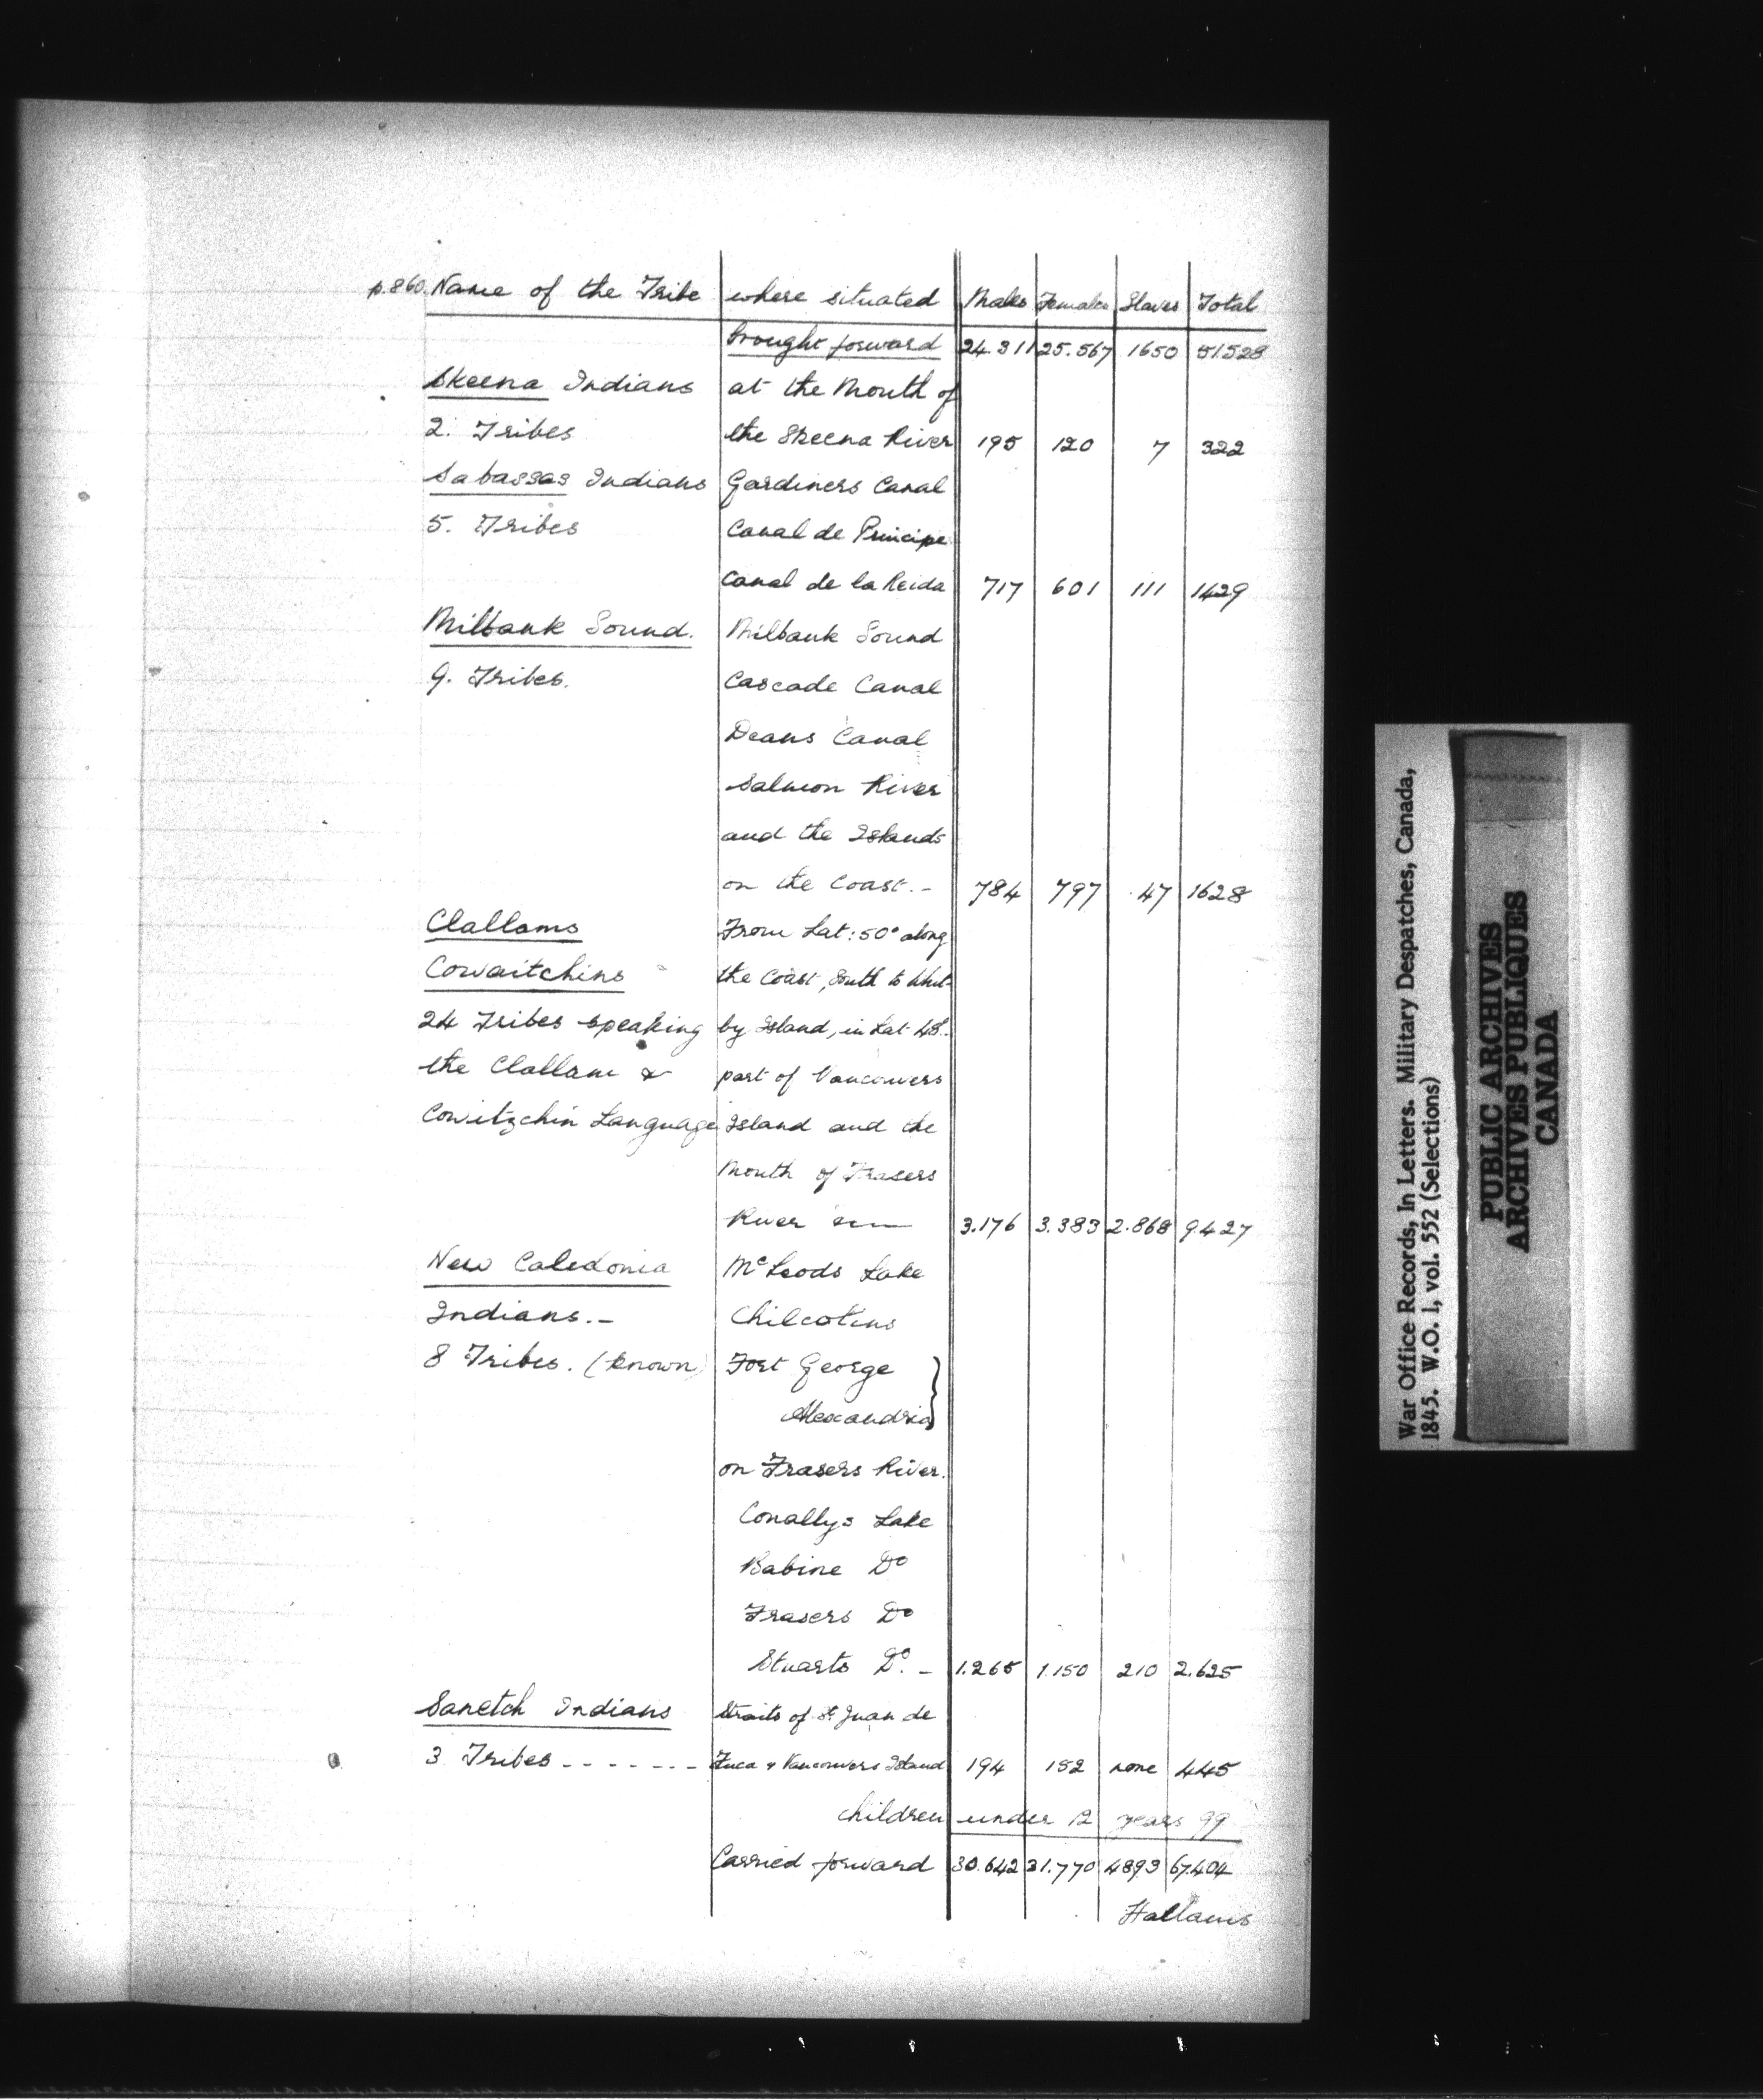 p.860. Name of the Tribe where situated Males Females Slaves Total
brought forward 24.311 25.567 1650 51.528
Skeena Indians at the Mouth of
2. Tribes the Skeena River 195 120 7 322
Sabassas Indians Gardiners Canal
5. Tribes Canal de Principe
Canal de la Reida 717 601 111 1429
Milbank Sound. Milbank Sound
9. Tribes. Cascade Canal
Deans Canal
Salmon River
and the Islands
on the Coast.- 784 797 47 1628
Clallams From Lat: 50° along
Cowaitchins the Coast, South to Whit-
24 Tribes speaking by Island, in Lat. 48°.
the Clallam & part of Vancouvers
Cowitzchin Language Island and the
Mouth of Frasers
River 3.176 3.383 2.868 9.427
New Caledonia McLeods Lake
Indians.- Chilcotins
8 Tribes. (known) Fort George
Alexandria
on Frasers River.
Conallys Lake
Babine Do
Frasers Do
Stuarts Do. - 1.265 1.150 210 2.625
Sanetch Indians Straits of St Juan de
3 Tribes - - - - - - - Fuca & Vancouvers Island 194 152 none 445
Children under 12 years 99
Carried forward 30.642 31.770 4893 67.404
Hallams
War Office Records, In Letters. Military Despatches, Canada,
1845. W.O. 1, vol. 552 (Selections)
PUBLIC ARCHIVES
ARCHIVES PUBLIQUES
CANADA